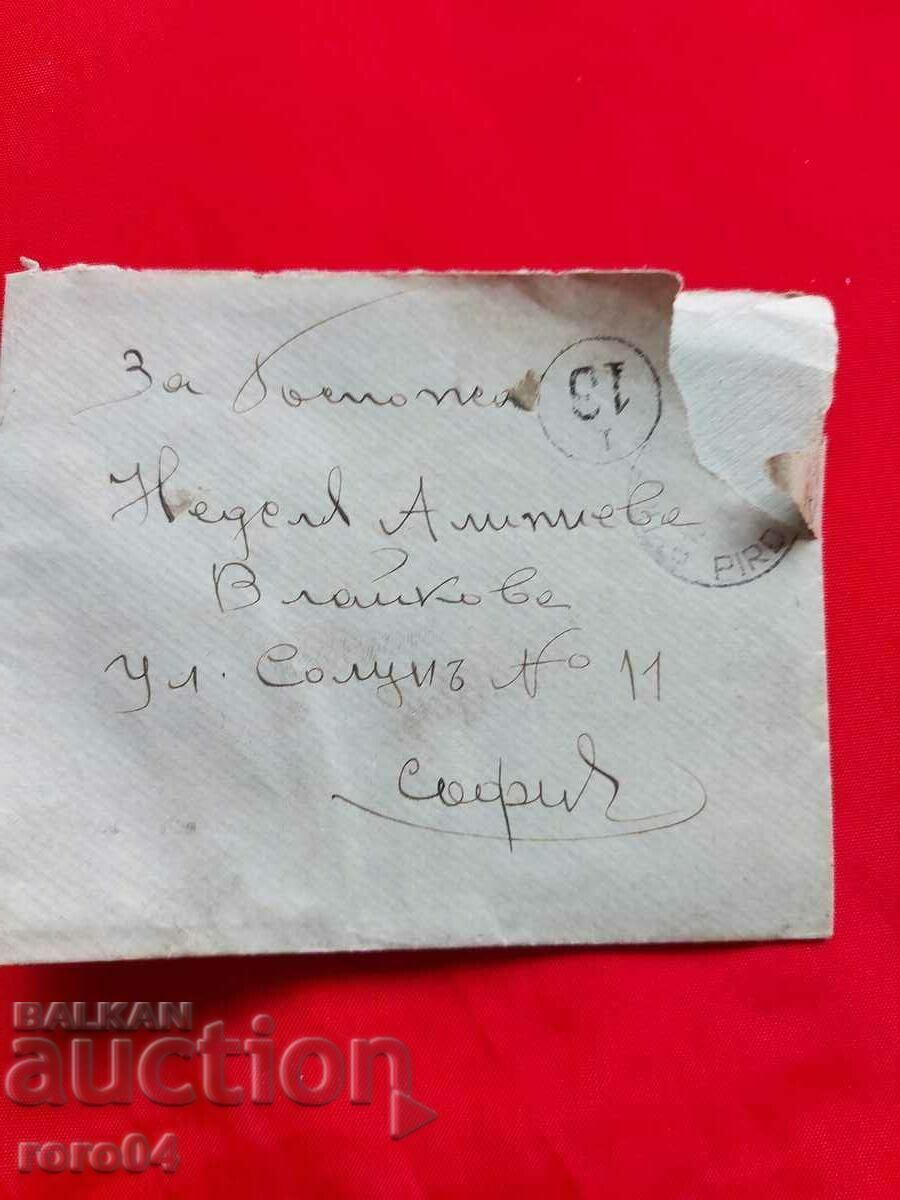 За Госпожа
13
Неделя Алипиева
PIRD
Влайкова
Ул. Солунъ № 11
София
BALKAN
auction
roro04